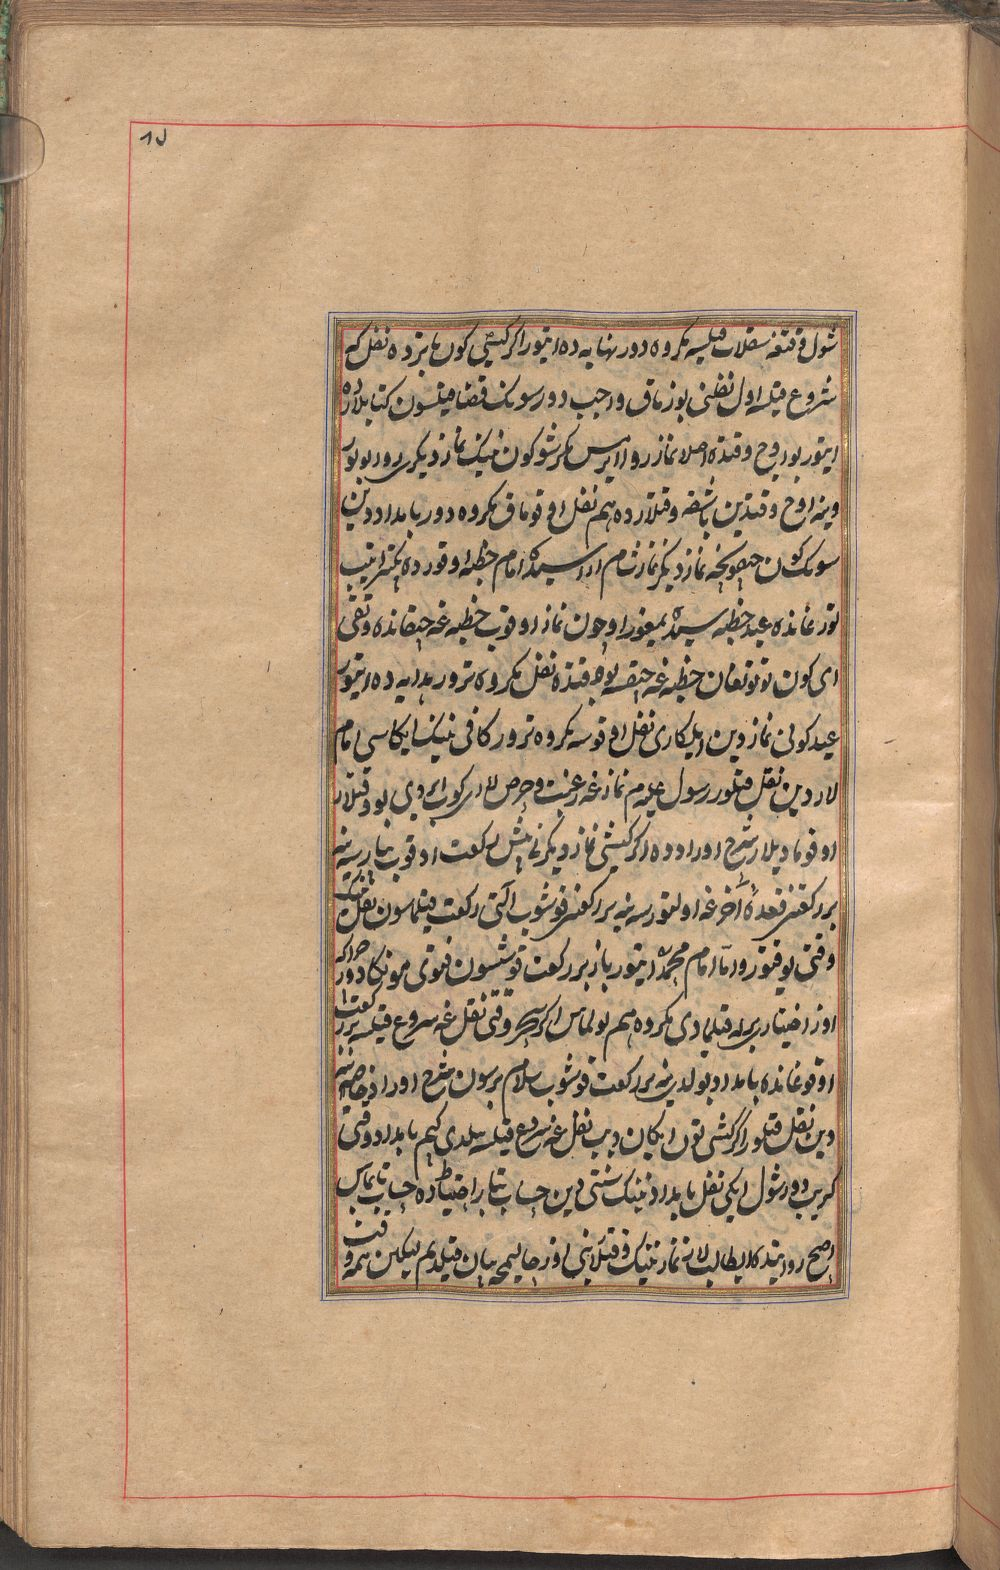 شول وقتغه سقلات قیلسه مکروه دور نهایه ده ایتور اکر کیشی کون یاتردہ نفل که
شروع قیلسه اول نفلنی بوزماق واجب دور سونک قضا قیلسون کتابلارده
ایتور بو اوچ وقتده اصلا نماز روا ایرمس مکر شو کون نینک نماز دیکری روا بولور
وینه اوچ وقتدین باشقه وقتلارده هم نفل اوقوماق مکروه دور بامداددین
سونک کون چیقونچه نماز دیکر نماز شام اراسیده امام خطبه اوقورده تکبیر ایتیب
تورغانده عید خطبه سیده یمغور اوچون نماز اوقوب خطبه غه چیقانده وقتی
ای کون توتوتغان خطبه غه چیقسه بو وقتده نفل مکروه ترور هدایه ده ایتور
عید کونی نمازدین ایلکاری نفل اوقوسه مکروه ترور کافی نینک ایکاسی امام
لاردین نقل قیلور رسول علیه م نمازغه رغبت وحرص لاری کوب ایردی بو وقتلار
اوقومادیلار شرح اوراد ده اکر کیشی نماز دیکرنی بیش رکعت اوقوب
بر رکعتنی قعدهٔ آخرغه اولتورسه ینه بر رکعتنی قوشوب آلتی رکعت قیلماسون نفل نینک
وقتی یوقتور و امّا امام محمد ایتور یانه بر رکعت قوشسون فتوی مونکا دور
اوز اختیاری برله قیلمادی مکروه هم بولماس اکر سحر وقتی نفل غه شروع قیلسه بر رکعت
اوقوغانده بامداد بولدی ینه بر رکعت قوشوب سلام برسون شرح اوراد
دین نقل قیلور اکر کیشی تون ایکان دیب نفل غه شروع قیلسه بیلدی کیم بامداد وقتی
کریب دور شول ایکی نفل بامداد نینک سنتی دین حساب تابار احتیاطده حساب تابماس
اصح روایتده کل ایطالب لار نماز نینک وقتلارینی اوز جایمچه بیان قیلدیم لیکن همه وقت